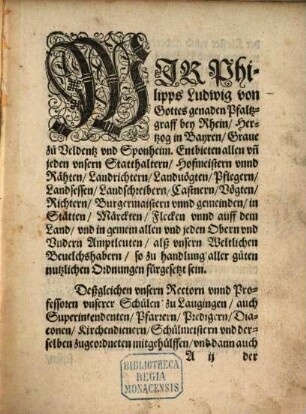 WIR Phi-
lipps Ludwig von
Gottes genaden Pfaltz-
graff bey Rhein/ Her-
tzog in Bayren/ Graue
zů Veldentz vnd Sponheim. Entbieten allen vñ
jeden vnsern Statthaltern/ Hofmeistern vnnd
Rähten/ Landrichtern/ Landuögten/ Pflegern/
Landsessen/ Landschreibern/ Castnern/ Vögten/
Richtern/ Burgermaistern vnnd gemeinden/ in
Stätten/ Märckten/ Flecken vnnd auff dem
Land/ vnd in gemein allen vnd jeden Obern vnd
Vndern Amptleuten/ alß vnsern Weltlichen
Beuelchshabern/ so zu handlung aller güten
nutzlichen Ordnungen fürgesetzt sein.
Deßgleichen vnsern Rectorn vnnd Pro-
fessoren vnserer Schülen zu Laugingen/ auch
Superintendenten/ Pfarrern/ Predigern/ Dia-
conen/ Kirchendienern/ Schülmeistern vnd der-
selben zugeordneten mitgehülffen/ vnd dann auch
A ij der
BIBLIOTHECA
REGIA
MONACENSIS